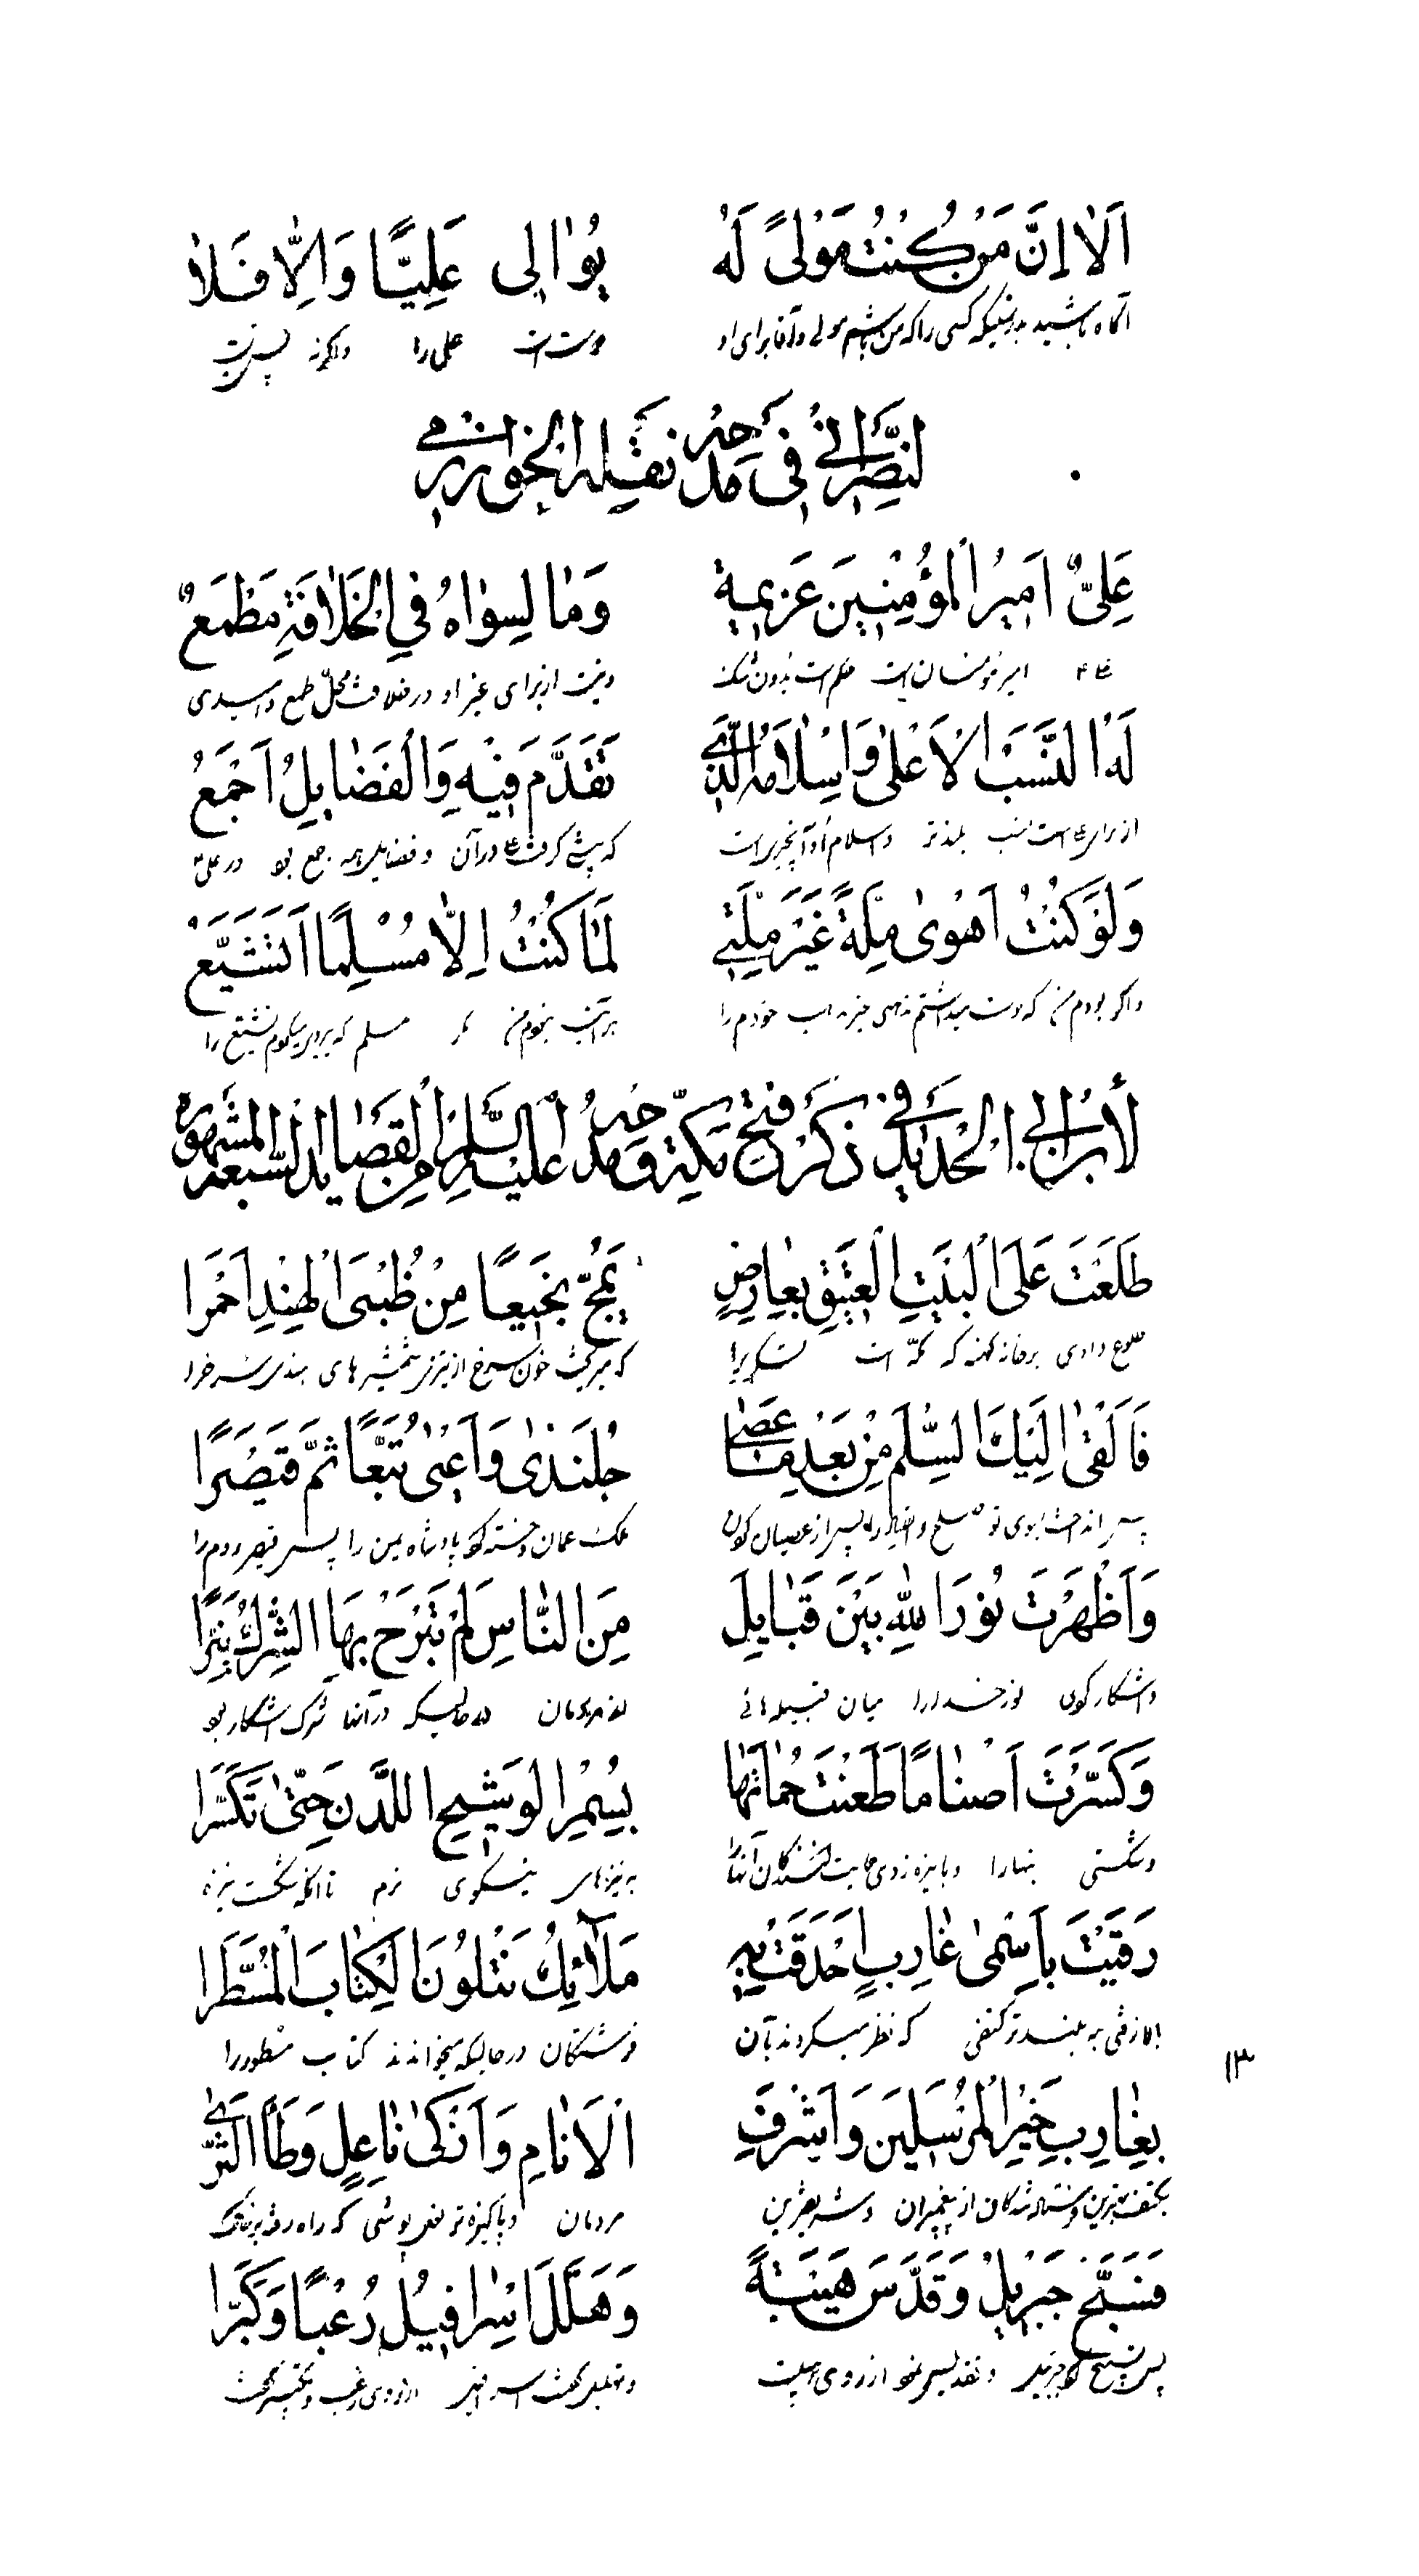 اَلاٰ اِنَّ مَنْ كُنْتُ مَوْلىً لَهُ يُوٰالِى عَلِيًّا وَاِلاّٰ فَلاٰ
آگاه باشید بدرستیکه کسی را که من باشم مولی و آقا برای او دوست است علی را و اگر نه پس نیست
لِنَصْرٰانِىٍّ فِى مَدْحِهِ نَقَلَهُ الْخَوٰارَزْمِى
عَلِىٌّ اَمِيرُ الْمُؤْمِنِينَ عَزِيمَة وَمٰا لِسِوٰاهُ فِي الْخَلاٰفَةِ مَطْمَعٌ
امیر مؤمنان است حکم است بدون شک و نیست از برای غیر او در خلافت محل طمع و امیدی
لَهُ النَّسَبُ الْاَعْلىٰ وَاِسْلاٰمُهُ الَّذِي تَقَدَّمَ فِيْهِ وَالْفَضٰايِلُ اَجْمَعُ
از برای است نسب بلندتر و اسلام او آنچیزیست که پیشی گرفت در آن و فضایل همه جمع بود در علی
وَلَوْ كُنْتُ اَهْوىٰ مِلَّةً غَيْرَ مِلَّتِي لَمٰا كُنْتُ اِلاّٰ مُسْلِمًا اَتَشَيَّعُ
و اگر بودم من که دوست میداشتم مذهبی جز مذهب خودم را هر آینه نبودم من مگر مسلم که پیروی میکردم تشیع را
لِأبْنِ اَبِي الْحَدِيدِ فِي ذِكْرِ فَتْحِ مَكَّةَ وَمَدْحِهِ عَلَيْهِ السَّلاٰمُ مِنَ الْقَصٰايِدِ السَّبْعَةِ الْمَشْهُورَةِ
طَلَعْتَ عَلَى الْبَيْتِ الْعَتِيقِ بِعٰارِضٍ يَمُجُّ نَجِيعًا مِنْ ظُبَى الْهِنْدِ اَحْمَرا
طلوع دادی بر خانه کهنه که مکه است لشکریرا که میریخت خون سرخ از تیزی شمشیرهای هندی سرخ را
فَاَلْقىٰ اِلَيْكَ السِّلْمَ مِنْ بَعْدِ مٰا عَصىٰ جُلَنْدىٰ وَاَعْيىٰ تُبَّعًا ثُمَّ قَيْصَرًا
پس انداخت بسوی تو صلح و انقیاد را پس از عصیان کردن ملک عمان و خسته کرد پادشاه یمن را پس قیصر روم را
وَاَظْهَرْتَ نُورَ اللهِ بَيْنَ قَبٰايِلٍ مِنَ النّٰاسِ لَمْ تَبْرَحْ بِهَا الشِّرْكُ نَيِّرًا
و آشکار کردی نور خدا را میان قبیله هائی از مردمان در حالیکه در آنها شرک آشکار بود
وَكَسَّرْتَ اَصْنٰامًا طَعَنْتَ حُمٰاتَهٰا بِسُمْرِ الْوَشِيحِ اللَّدْنِ حَتّىٰ تَكَسَّرا
و شکستی بتها را و با نیزه زدی حمایت کنندگان آنها را به نیزهای نیکوی نرم تا آنکه شکست نیزه
رَقَيْتَ بِاَسْمىٰ غٰارِبٍ اَحْدَقَتْ بِهِ مَلآئِكُ يَتْلُونَ الْكِتٰابَ الْمُسَطَّرا
بالا رفتی به بلندتر کتفی که نظر میکردند بآن فرشتگان در حالیکه میخواندند کتاب مسطور را
۱۳
بِغٰارِبِ خَيْرِ الْمُرْسَلِينَ وَاَشْرَفِ الْاَنٰامِ وَاَزْكىٰ نٰاعِلٍ وَطَأَ الثَّرىٰ
بکتف بهترین فرستاده شدگان از پیغمبران و شریفترین مردمان و پاکیزه تر نعل پوشی که راه رفته بر خاک
فَسَبَّحَ جِبْرِيلُ وَقَدَّسَ هَيْبَةً وَهَلَّلَ اِسْرٰافِيلُ رُعْبًا وَكَبَّرا
پس تسبیح کرد جبرئیل و تقدیس نمود از روی هیبت و تهلیل گفت اسرافیل از روی رعب و تکبیر گفت